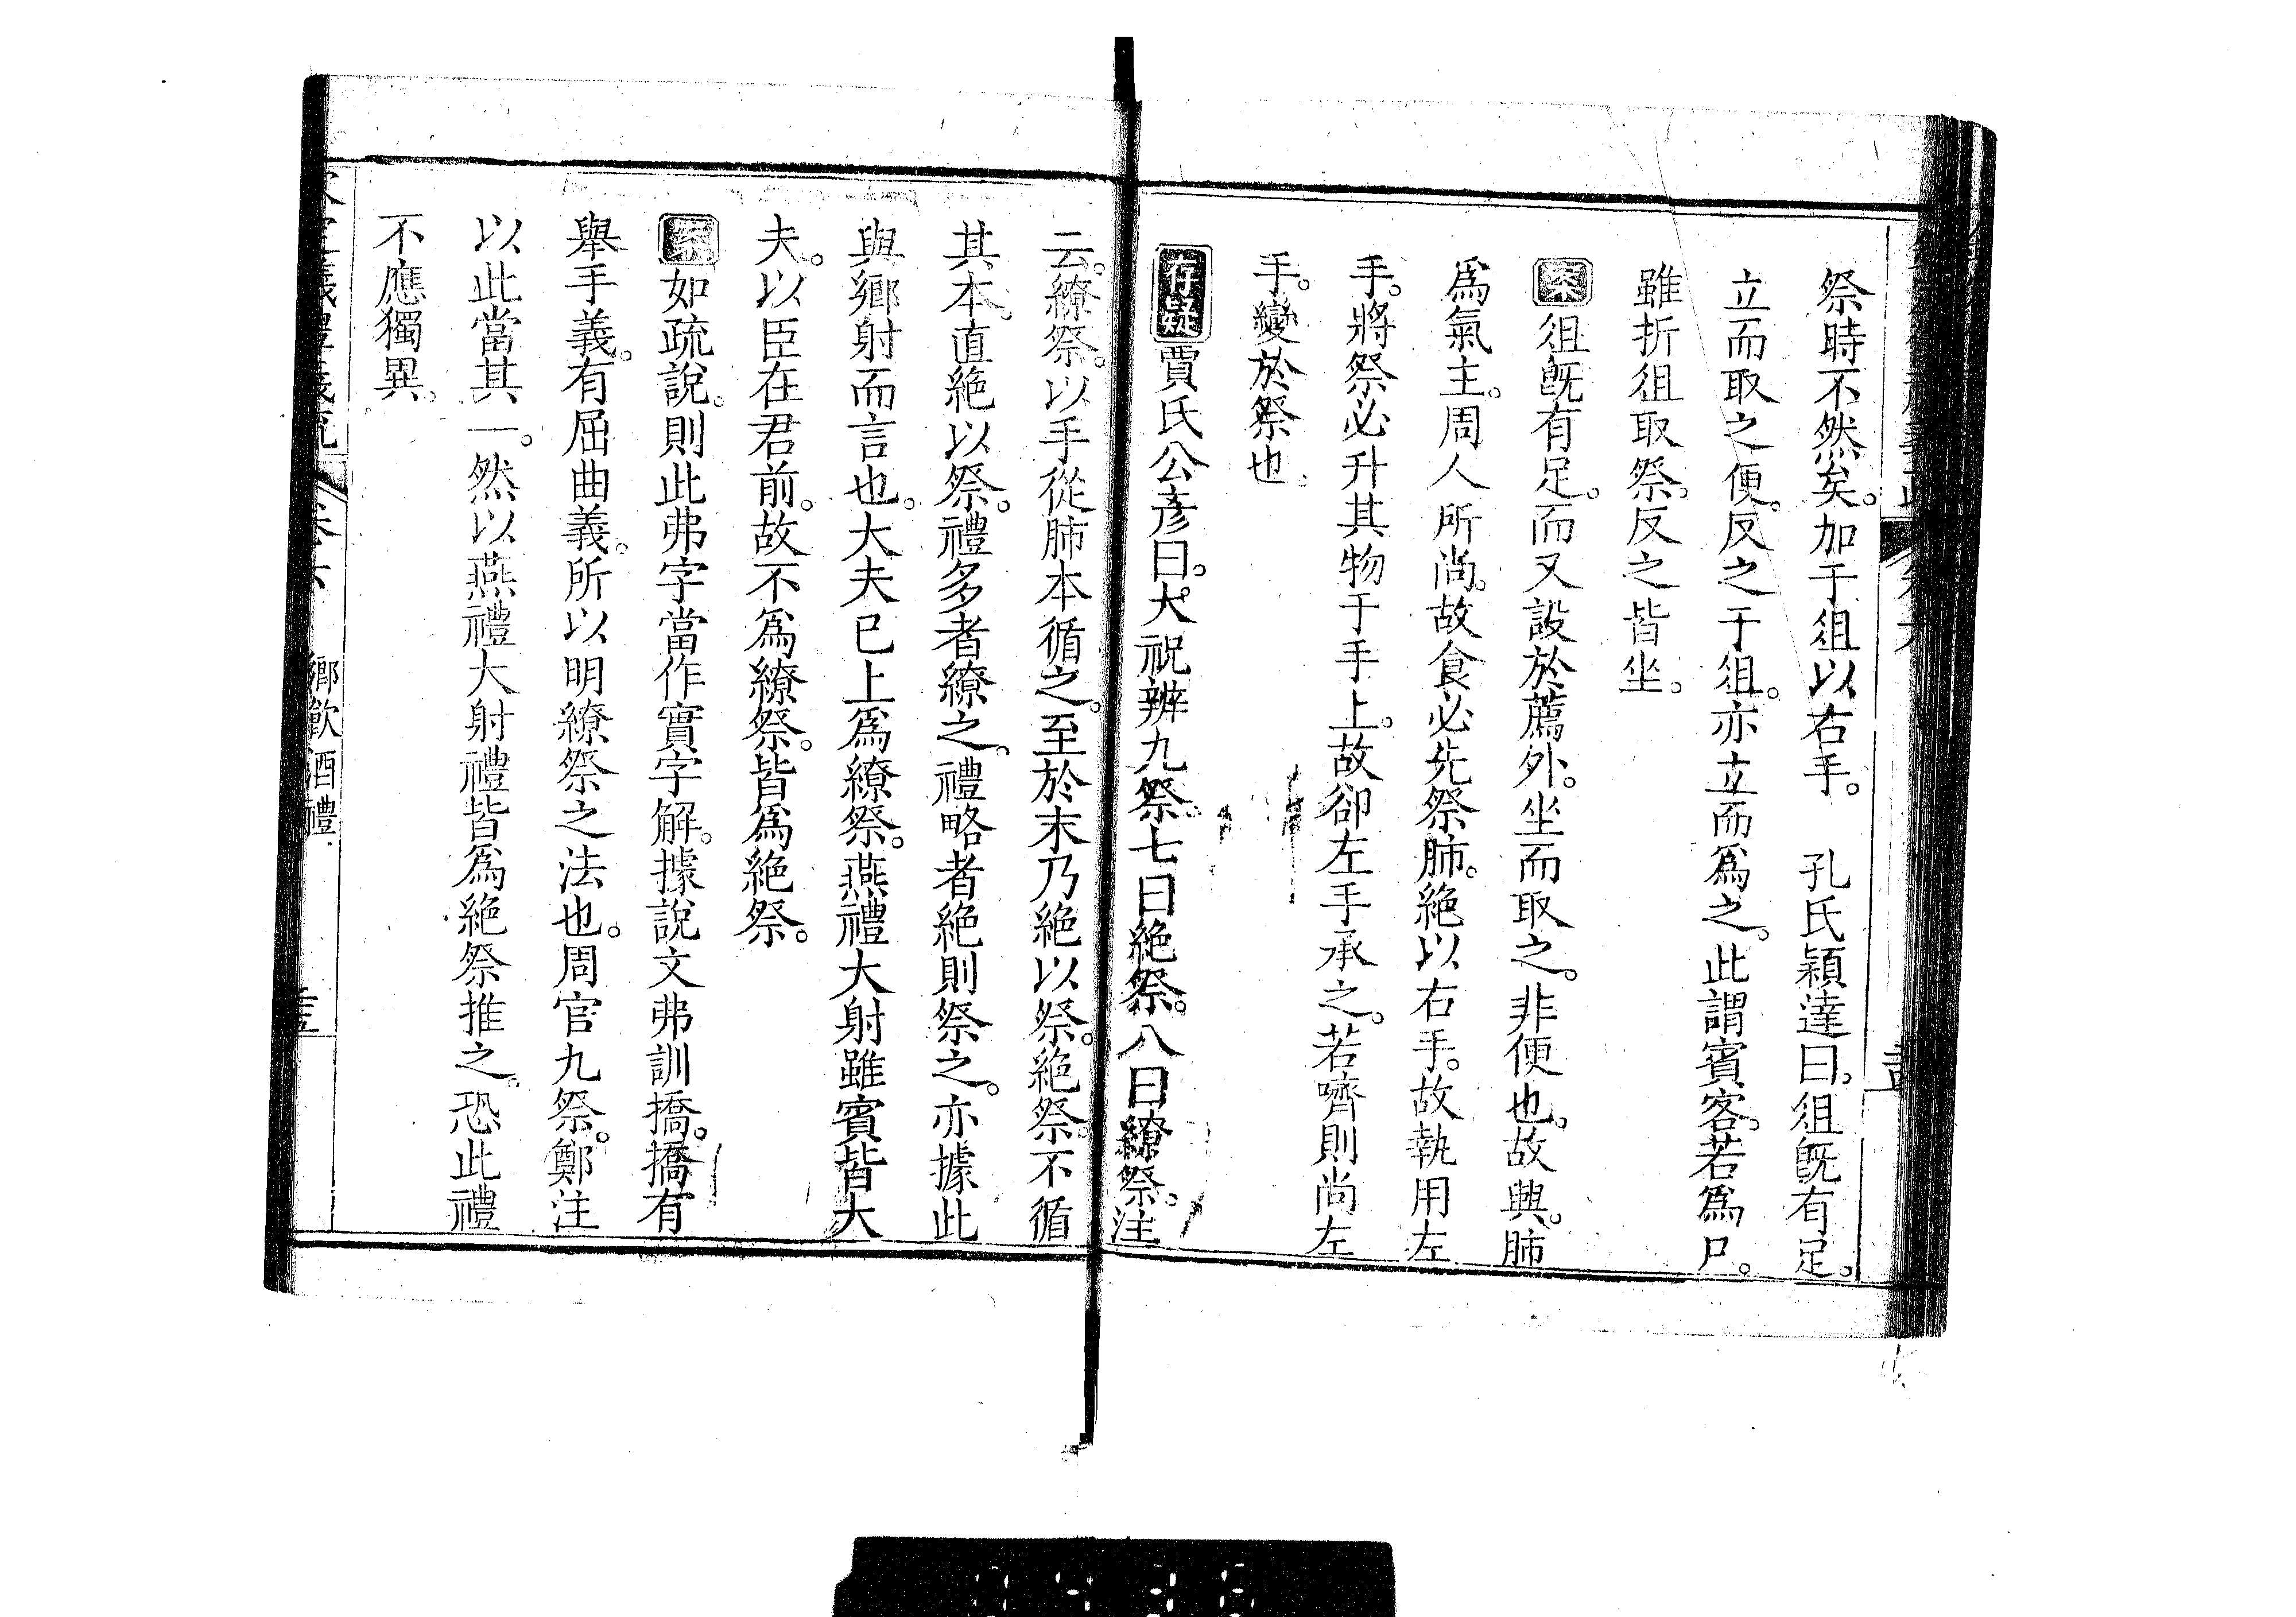 祭時不然矣。加于俎以右手。　孔氏穎達曰。俎旣有足。
立而取之便。反之于俎。亦立而爲之。此謂賓客。若爲尸。
雖折俎取祭。反之皆坐。
案俎旣有足。而又設於薦外。坐而取之。非便也。故興。肺
爲氣主。周人所尚。故食必先祭肺。絶以右手。故執用左
手。將祭必升其物于手上。故卻左手承之。若嚌則尚左
手。變於祭也。
存疑賈氏公彥曰。大祝辨九祭。七曰絶祭。八曰繚祭。注
云。繚祭。以手從肺本循之。至於末乃絶以祭。絶祭。不循
其本。直絶以祭。禮多者繚之。禮略者絶則祭之。亦據此
與鄉射而言也。大夫已上爲繚祭。燕禮大射雖賓皆大
夫。以臣在君前。故不爲繚祭。皆爲絶祭。
案如疏說。則此弗字當作實字解。據說文弗訓撟。撟有
舉手義。有屈曲義。所以明繚祭之法也。周官九祭。鄭注
以此當其一。然以燕禮大射禮皆爲絶祭推之。恐此禮
不應獨異。
鄉飲酒禮